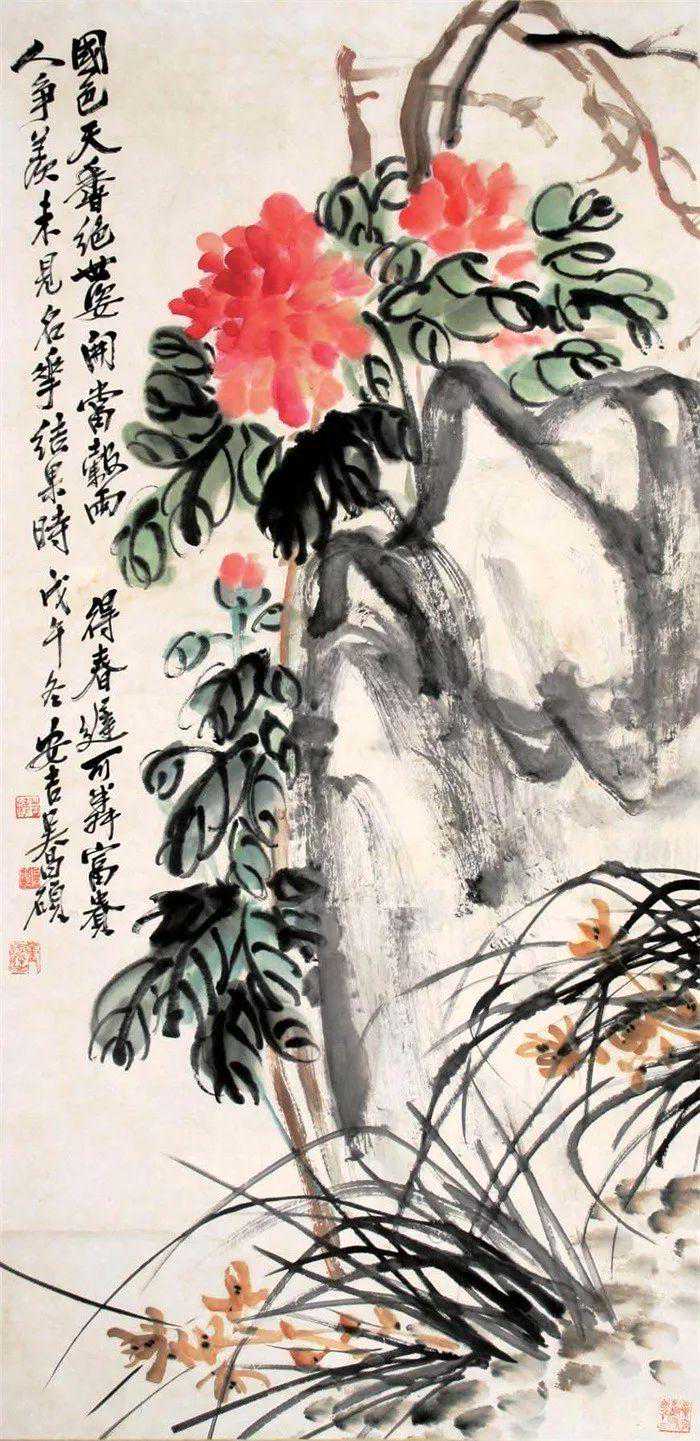 國色天香絕世姿開當穀雨得春遲可憐富貴
人爭羨未見名華結果時戊午冬安吉吳昌碩